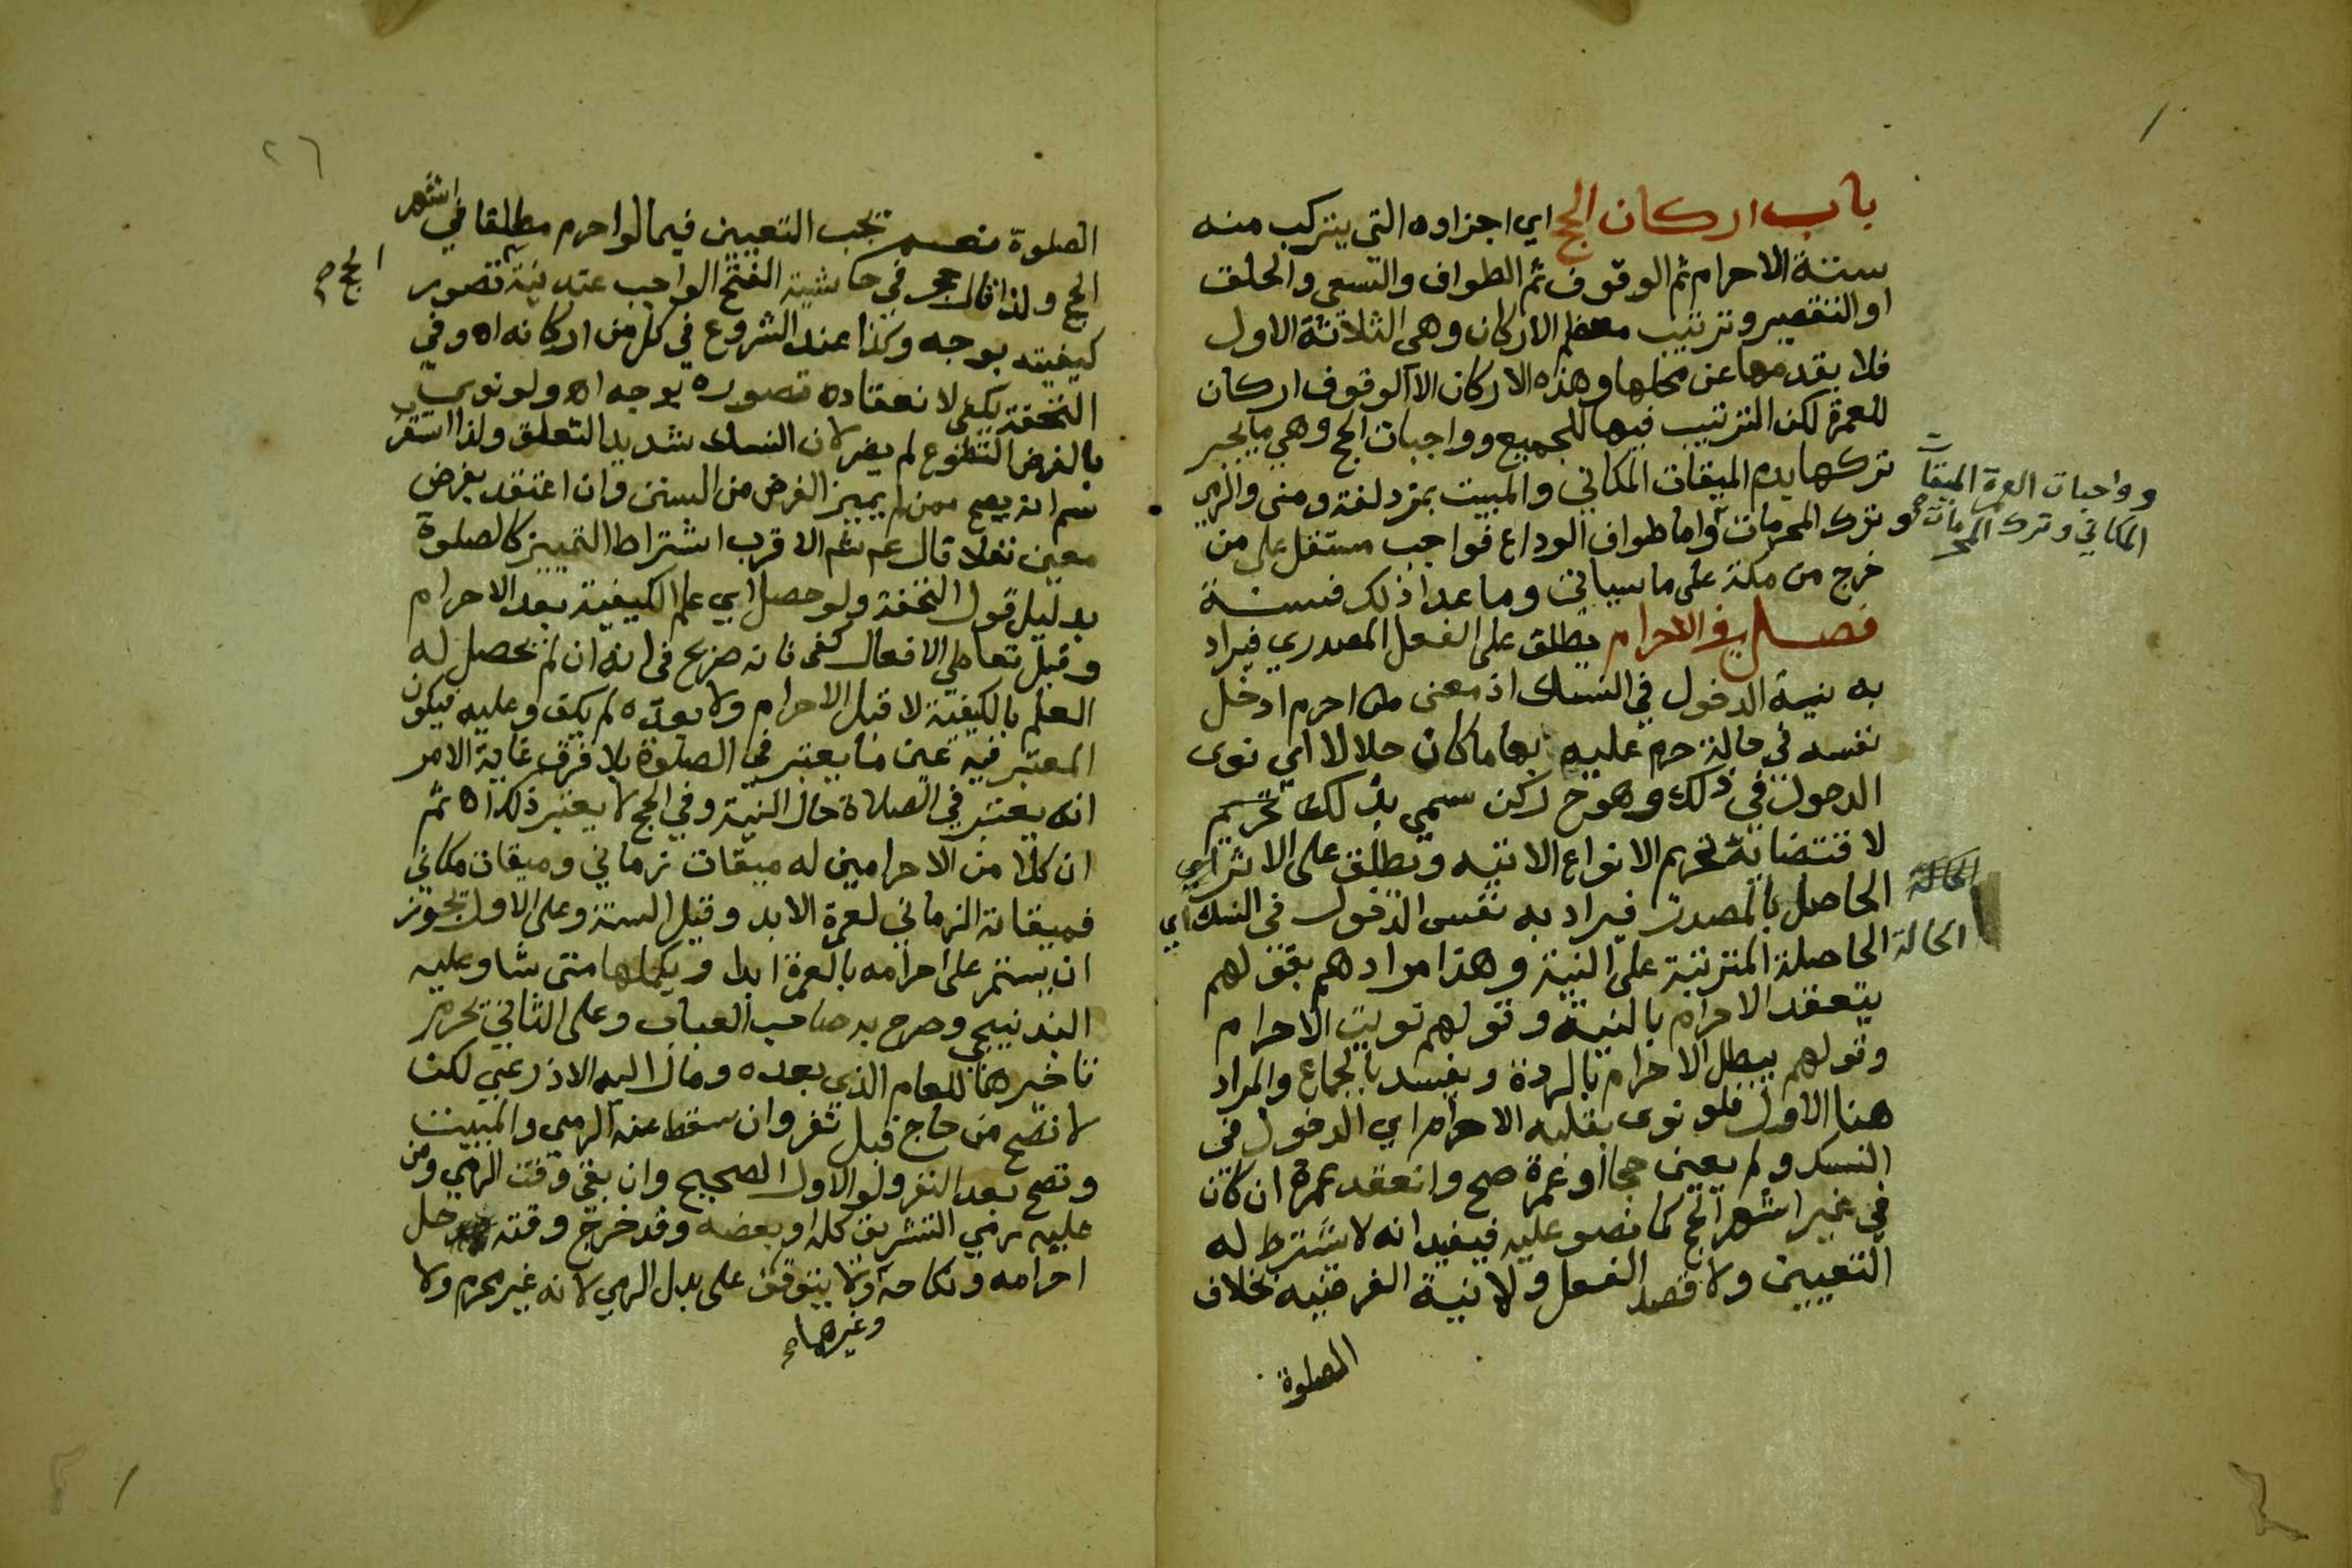 باب اركان الحج اي اجزاوه التي يتركب منه
ستة الاحرام ثم الوقوف ثم الطواف والسعي والحلق
او التقصير وترتيب معظم الاركان وهي الثلاثة الاول
فلا يقدمها عن محلها وهذه الاركان الا الوقوف اركان
للعمرة لكن الترتيب فيها للجميع وواجبات الحج وهي ما يجبر
تركها بدم الميقات المكاني والمبيت بمزدلفة ومنى والرمي
وترك المحرمات واما طواف الوداع فواجب مستقل على من
خرج من مكة على ما سياتي وما عدا ذلك فسنة
فصل في الاحرام يطلق على الفعل المصدري فيراد
به نية الدخول في النسك اذ معنى احرم ادخل
نفسه في حالة حرم عليه بها ما كان حلالا اي نوى
الدخول في ذلك وهو ح ركن سمي بذلك
لاقتضائه تحريم الانواع الاتيه ويطلق على الاثر اي
الحاصل بالمصدر فيراد به نفس الدخول في النسك اي
الحالة الحاصلة المترتبة على النية وهذا مرادهم بقولهم
ينعقد الاحرام بالنية وقولهم نويت الاحرام
وقولهم يبطل الاحرام بالردة ويفسد بالجماع والمراد
هنا الاول فلو نوى بقلبه الاحرام اي الدخول في
النسك ولم يعين حجا او عمرة صح وانعقد عمرة ان كان
في غير اشهر الحج كما نصو عليه فيفيد انه لا يشترط له
التعيين ولا قصد الفعل ولا نية الفرضيه بخلاف
الصلوة
وواجبات العمرة الميقات
المكاني وترك المحرمات صح
٢٦
الصلوة نعم يجب التعيين فيما لو احرم مطلقا في اشهر
الحج ولذا قال حجر في حاشية الفتح الواجب عند نية تصور
الحج صح
كيفيته بوجه وكذا عند الشروع في كل من اركانه اه وفي
التحفة يكفي لانعقاده تصوره بوجه اه ولو نوى
بالفرض التطوع لم يضر لان النسك شديد التعلق ولذا استقرب
سم انه يصح ممن لم يميز الفرض من السنن وان اعتقد بفرض
معين نفلا قال ثم الاقرب اشتراط التمييز كالصلوة
بدليل قول التحفة ولو حصل اي علم الكيفية بعد الاحرام
وقبل تعاطي الافعال كفى فانه صريح في انه ان لم يحصل له
العلم بالكيفية لا قبل الاحرام ولا بعده لم يكف وعليه فيكون
المعتبر فيه عين ما يعتبر في الصلوة بلا فرق غاية الامر
انه يعتبر في الصلاة حال النية وفي الحج لا يعتبر ذلك اه ثم
ان كلا من الاحرامين له ميقات زماني وميقات مكاني
فميقاته الزماني لعمرة الابد وقيل السنة وعلى الاول يجوز
ان يستمر على احرامه بالعمرة ابدا ويكملها متى شا وعليه
البندنيجي وصرح به صاحب العباب وعلى الثاني يحرم
تاخيرها للعام الذي بعده ومال اليه الاذرعي لكن
لا تصح من حاج قبل نفر وان سقط عنه الرمي والمبيت
وتصح بعد النفر ولو الاول الصحيح وان بقي وقت الرمي ومن
عليه رمي التشريق كله او بعضه وقد خرج وقته حل
احرامه ونكاحه ولا يتوقف على بدل الرمي لانه غير محرم ولا
وغيرها صح